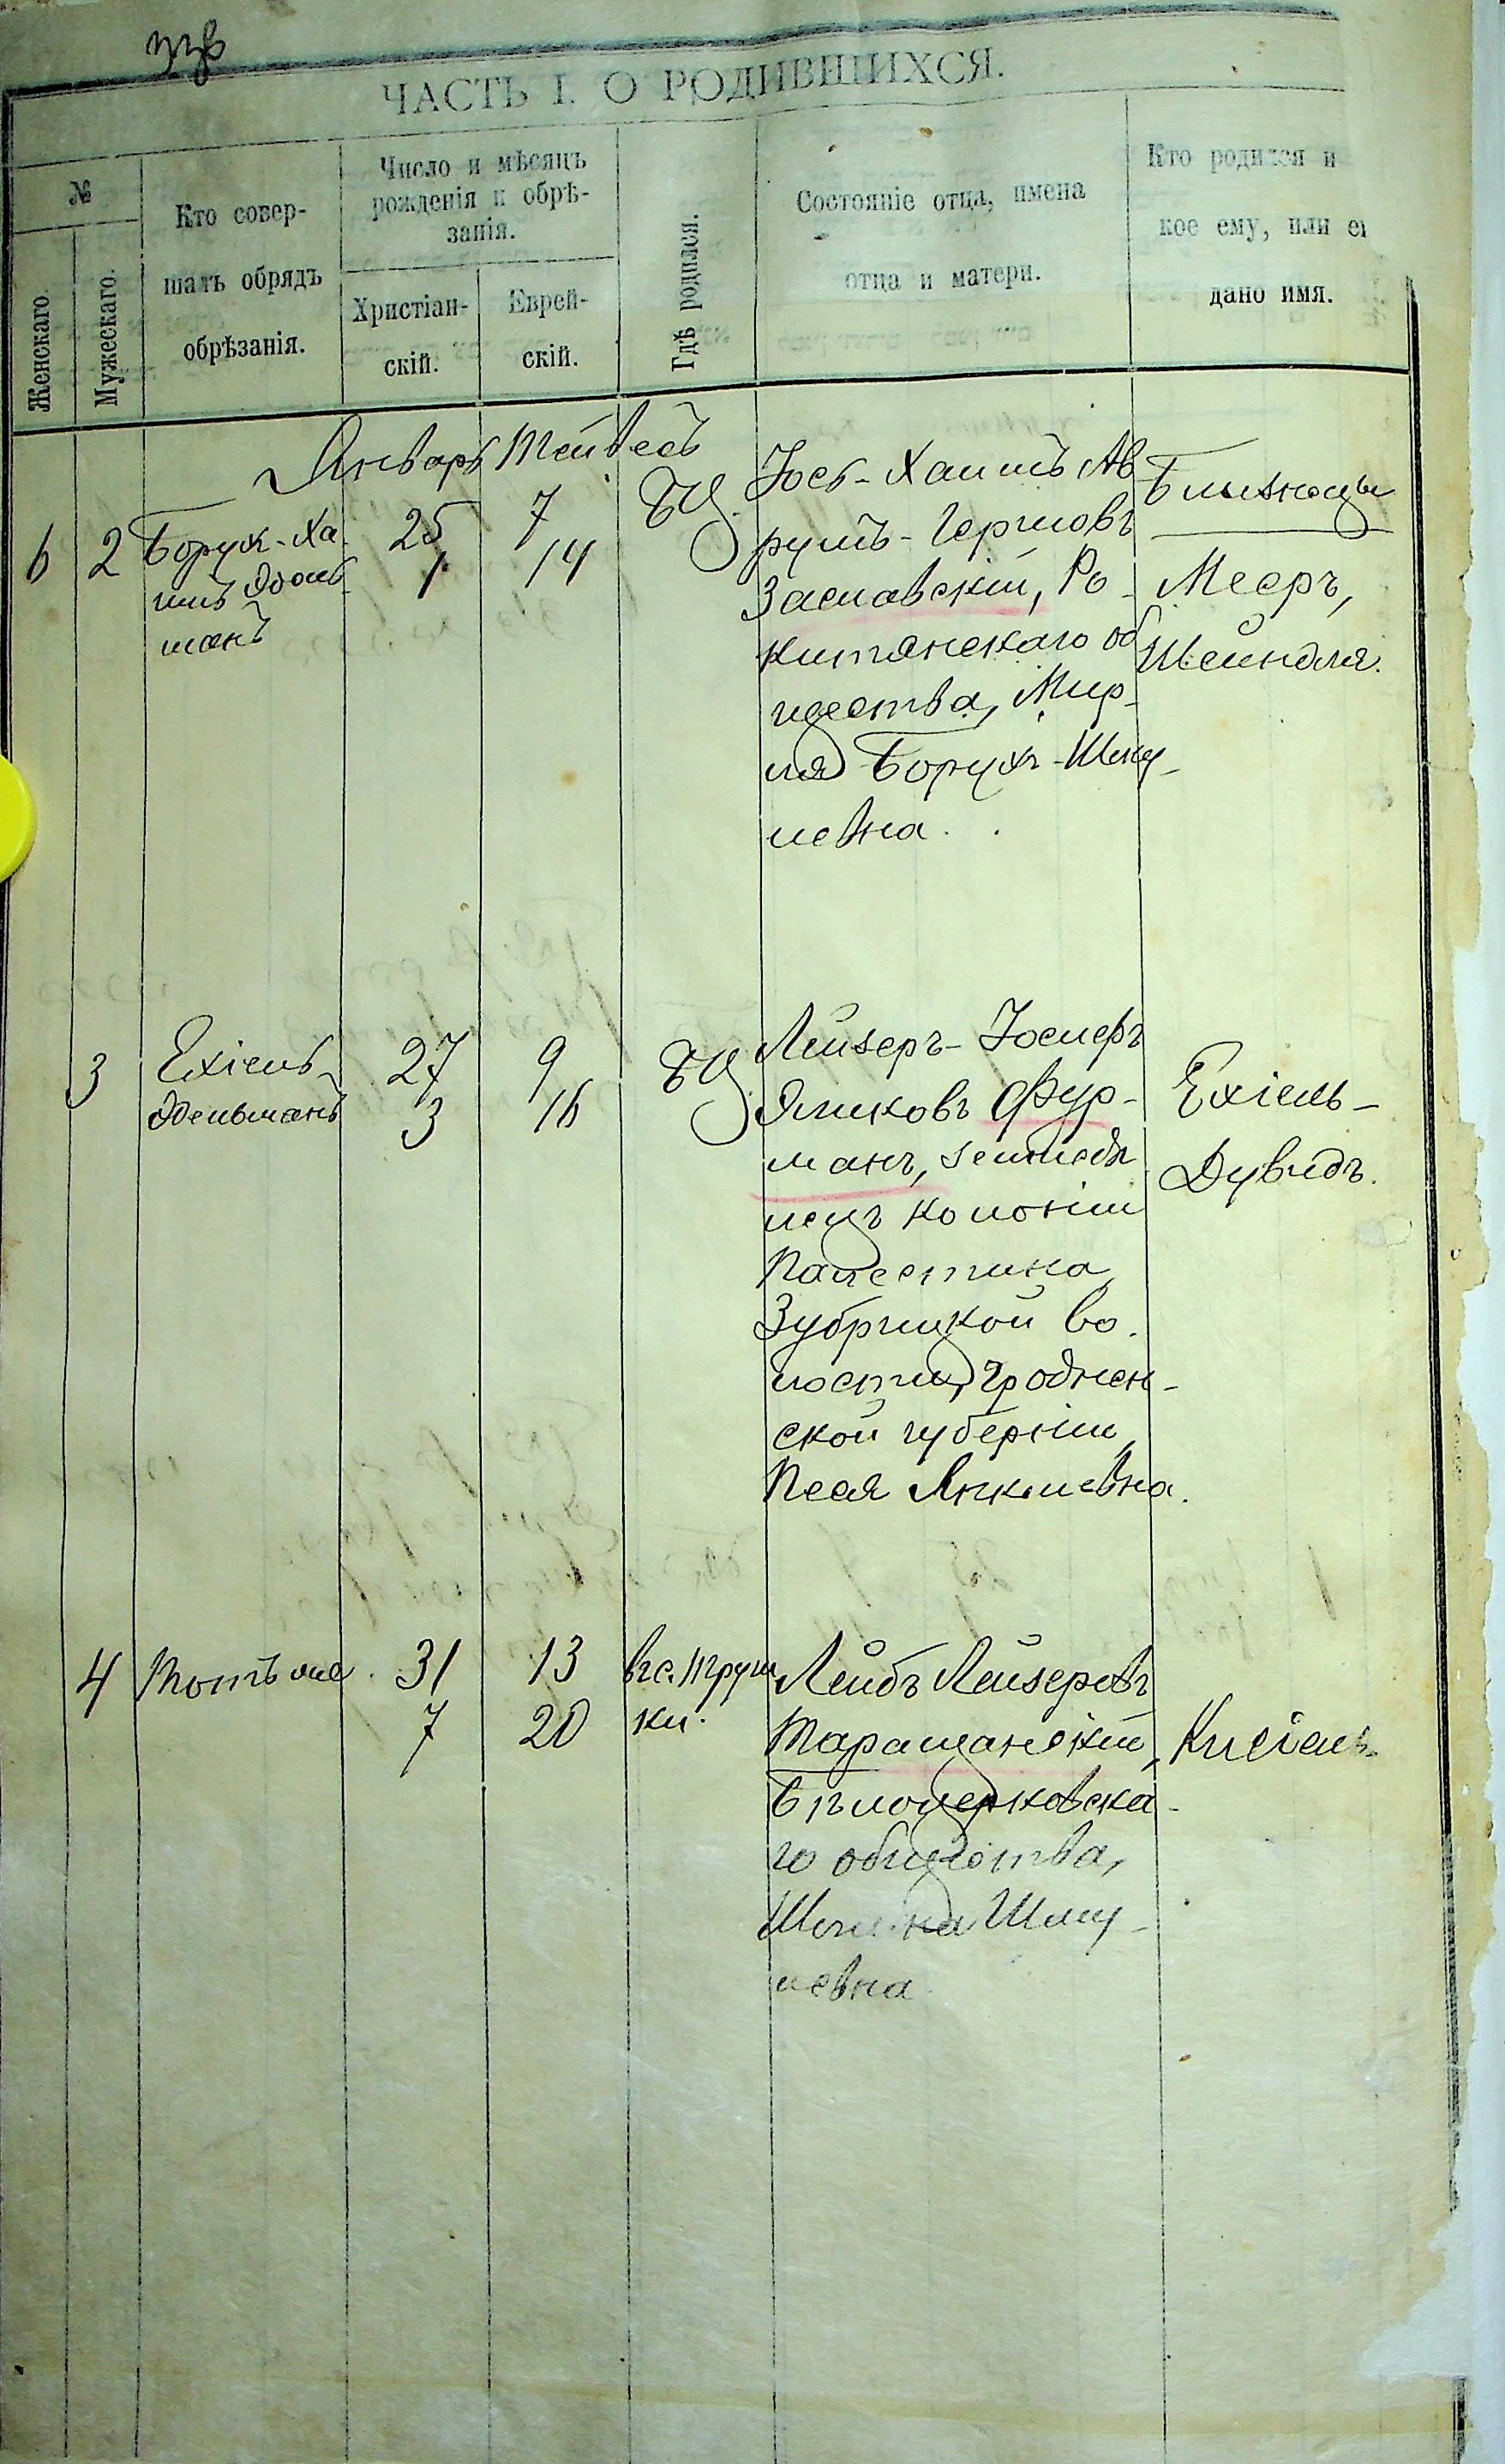 ЧАСТЬ I. О РОДИВШИХСЯ.
№
Женскаго.
Мужескаго.
Кто совер-
шалъ обрядъ
обрѣзанія.
Число и мѣсяцъ
рожденія и обрѣ-
занія.
Христіан-
скій.
Еврей-
скій.
Гдѣ родился.
Состояніе отца, имена
отца и матери.
Кто родился и
кое ему, или ей
дано имя.
Январь Тейвесъ
6 2
Борух-Ха
имъ
манъ
25
1
7
14
БЦ.
Іось-Хаимъ Ав
румъ-Гершовъ
Заславскій, Ро-
китянскаго об
щества, Мир-
ля Борухъ-Шму-
левна.
Близнецы
Мееръ,
Шейндля.
3
Ехіель-
Эдельманъ
27
3
9
16
БЦ.
Лейзеръ-Іосифъ
Ямковъ Фур-
манъ, земледѣ
лецъ колоніи
Палестина,
Зубрицкой во-
лости, Гроднен-
ской губерніи,
Песя Янкелевна.
Ехіель-
Дувидъ.
4
Тотъ же.
31
7
13
20
въ с. Труш
ки.
Лейбъ Лейзеровъ
Таращанскій,
Бѣлоцерковска-
го общества,
Шму-
левна
Кисіель.